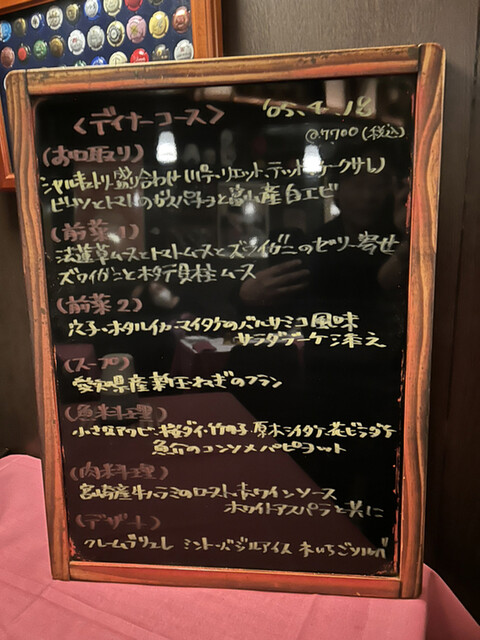 〈ディナーコース〉 '05.4.18
@7700(税込)
(お口取り)
シャルキュトリー盛り合わせ(パテ・リエット、テッド
ビーツとトマトのガスパチョと富山産白エビ
(前菜1)
法蓮草ムースとトマトムースとズワイガニのゼリー寄せ
ズワイガニとホタテ貝柱ムース
(前菜2)
穴子・ホタルイカ・マイタケのバルサミコ風味
サラダブーケ添え
(スープ)
愛知県産新玉ねぎのフラン
(魚料理)
小さなアワビ・桜ダイ・竹の子・原木シイタケ・花ビラダケ
魚介のコンソメパピヨット
(肉料理)
宮崎産牛ハラミのロースト、赤ワインソース
ホワイトアスパラと共に
(デザート)
クレームブリュレ ミント・バジルアイス 木いちごソルベ